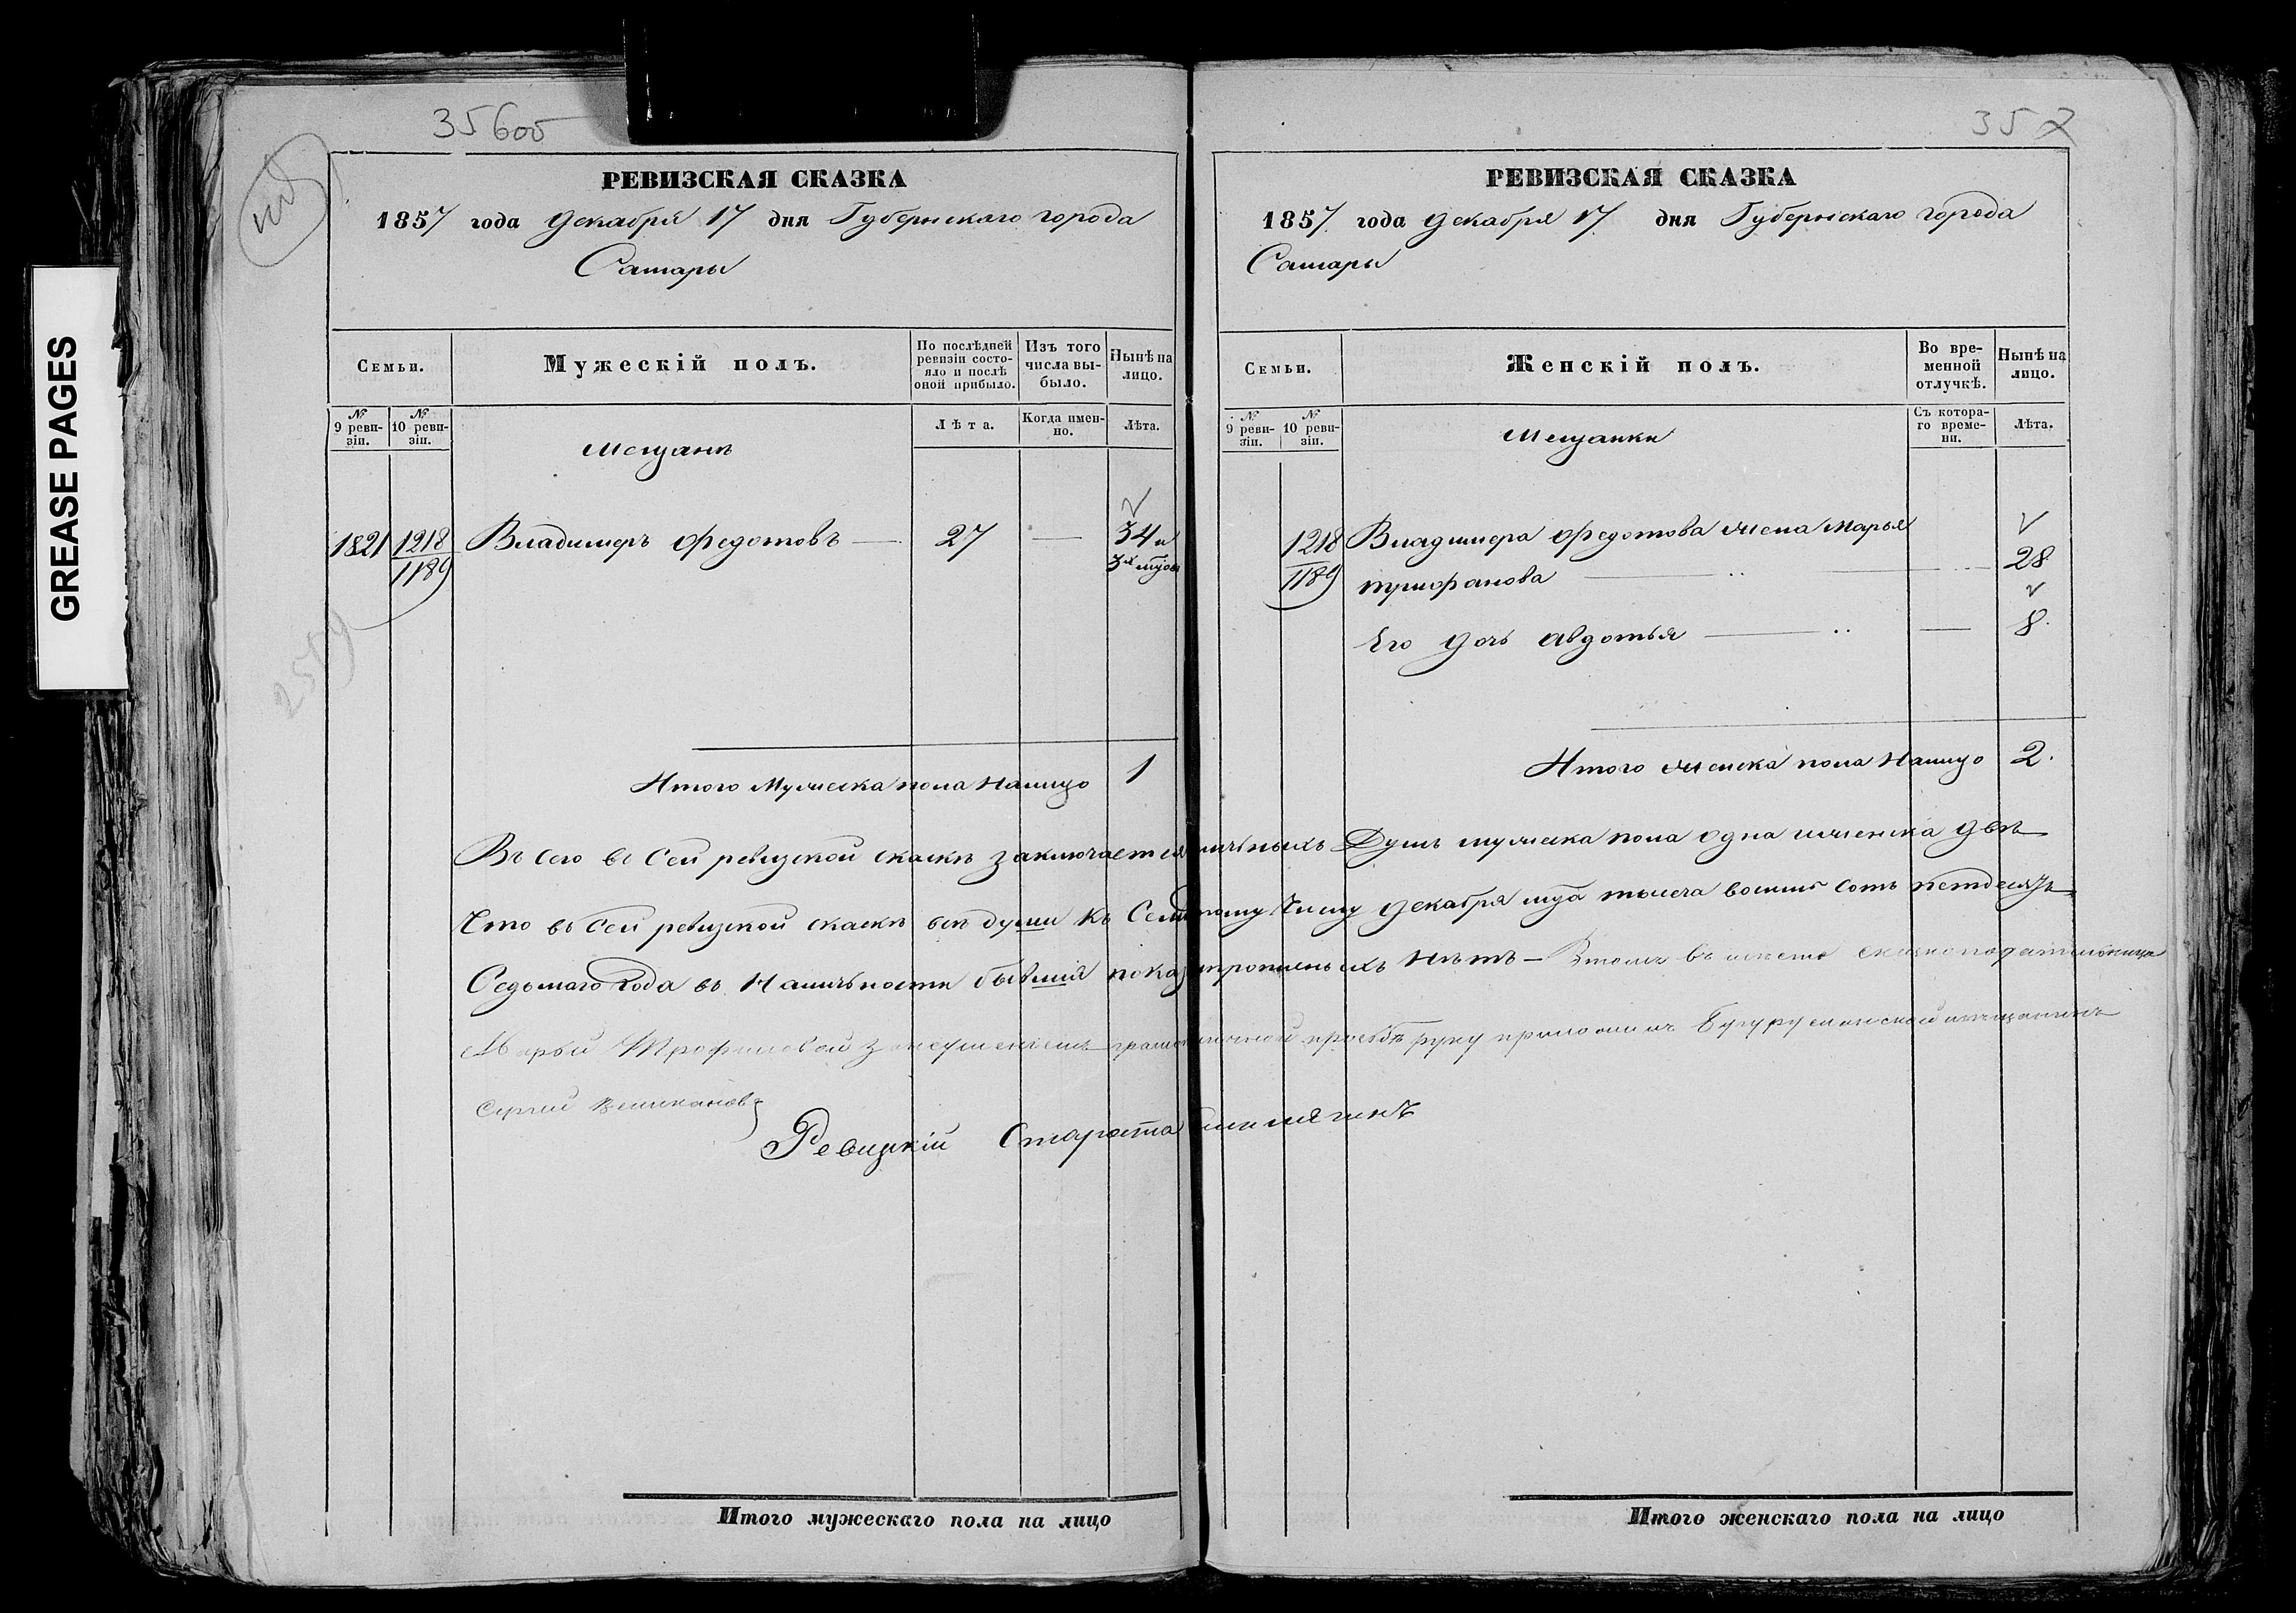 GREASE PAGES
356об
РЕВИЗСКАЯ СКАЗКА
1857 года декабря 17 дня Губернскаго города
Самары
Семьи.
Мужескій полъ.
По послѣдней ревизіи состояло и послѣ оной прибыло.
Изъ того числа выбыло.
Нынѣ на лицо.
№ 9 ревизіи.
№ 10 ревизіи.
Мещанъ
Лѣта.
Когда именно.
Лѣта.
1821 1218 Владимеръ Федотовъ — 27 — 34 и
1189
Итого Мужеска пола Налицо 1
357
РЕВИЗСКАЯ СКАЗКА
1857 года декабря 17 дня Губернскаго города
Самары
Семьи.
Женскій полъ.
Во временной отлучкѣ.
Нынѣ на лицо.
№ 9 ревизіи.
№ 10 ревизіи.
Мещанки
Съ котораго времени.
Лѣта.
1218 Владимера Федотова жена Марья
1189 трифанова — 28
Его дочь авдотья — — 8.
Итого женска пола Налицо 2.
Въ сего въ Сей ревизкой скаскѣ заключается Душъ мужеска пола одна женска двѣ
Что въ сей ревизкой скаскѣ всѣ души къ числу декабря мца тысеча восимь сотъ петдесятъ
Седьмаго года въ Наличности бывшія нѣтъ — В томъ въ место сказкоподательницы
Марьи Трофимовой руку приложилъ Бугурусланской мещанинъ
Сергей Великановъ
Ревизкій Староста
Итого мужескаго пола на лицо
Итого женскаго пола на лицо